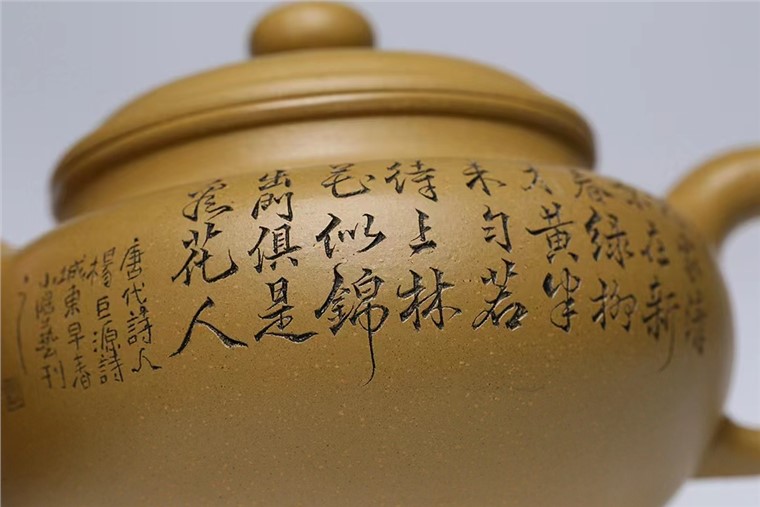 家清
景在新
春绿柳
才黄半
未匀若
待上林
花似錦
出門俱是
看花人
唐代詩人
楊巨源詩
城東早春